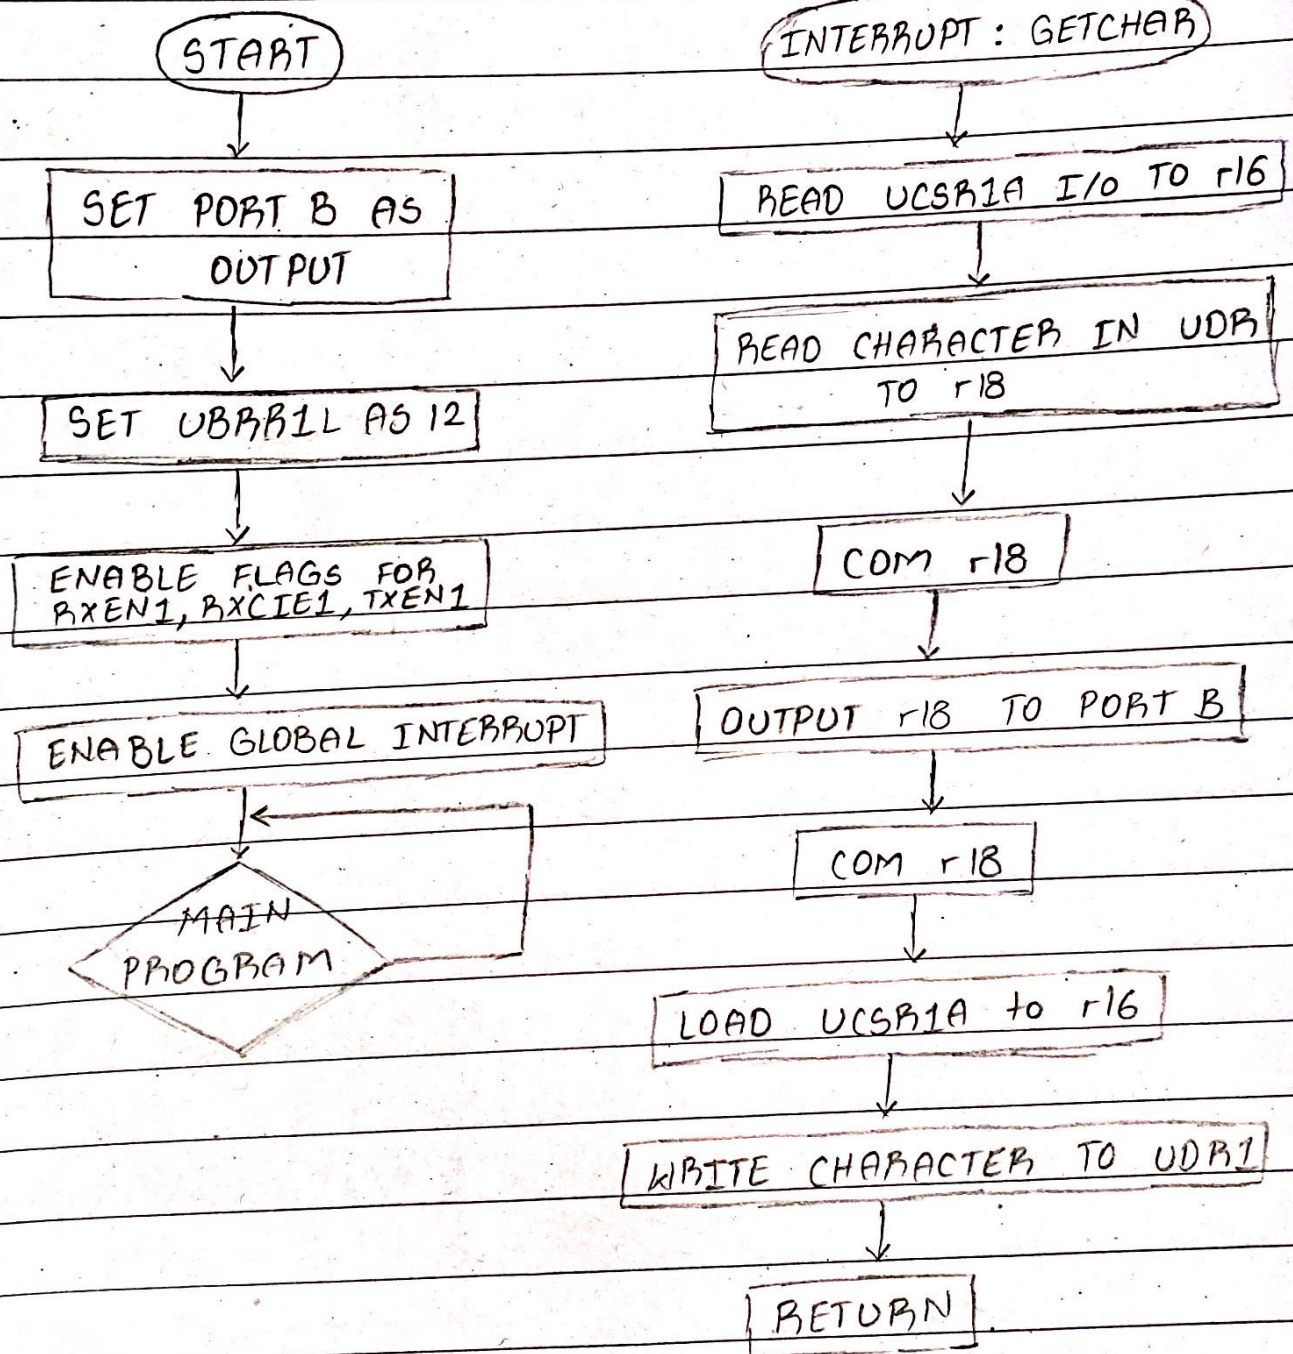 START
SET PORT B AS
OUTPUT
SET UBRR1L AS 12
ENABLE FLAGS FOR
RXEN1, RXCIE1, TXEN1
ENABLE GLOBAL INTERRUPT
MAIN
PROGRAM
INTERRUPT : GETCHAR
READ UCSR1A I/O TO r16
READ CHARACTER IN UDR
TO r18
COM r18
OUTPUT r18 TO PORT B
COM r18
LOAD UCSR1A to r16
WRITE CHARACTER TO UDR1
RETURN